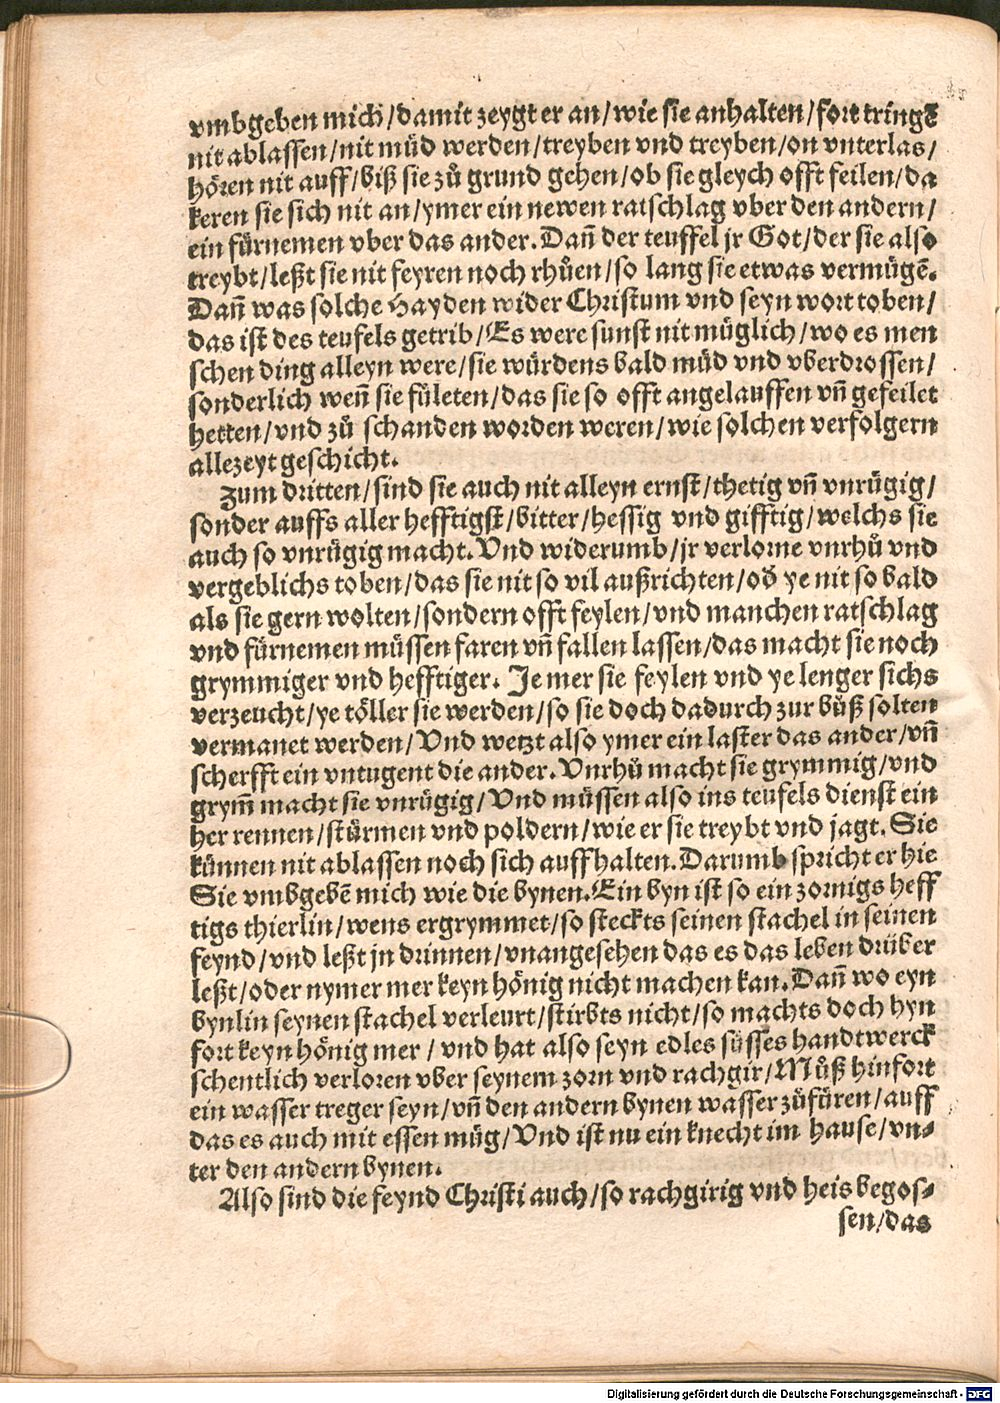 vmbgeben mich/damit zeygt er an/wie sie anhalten/fort tringē
nit ablassen/nit müd werden/treyben vnd treyben/on vnterlas/
hören nit auff/biß sie zů grund gehen/ob sie gleych offt feilen/da
keren sie sich nit an/ymer ein newen ratschlag vber den andern/
ein fürnemen vber das ander. Dañ der teuffel jr Got/der sie also
treybt/leßt sie nit feyren noch rhůen/so lang sie etwas vermügē.
Dañ was solche Hayden wider Christum vnd seyn wort toben/
das ist des teufels getrib/Es were sunst nit müglich/wo es men
schen ding alleyn were/sie würdens bald müd vnd vberdrossen/
sonderlich weñ sie fületen/das sie so offt angelauffen vñ gefeilet
hetten/vnd zů schanden worden weren/wie solchen verfolgern
allezeyt geschicht.
Zum dritten/sind sie auch nit alleyn ernst/thetig vñ vnrügig/
sonder auffs aller hefftigst/bitter/hessig vnd gifftig/welchs sie
auch so vnrügig macht. Vnd widerumb/jr verlorne vnrhů vnd
vergeblichs toben/das sie nit so vil außrichten/od̄ ye nit so bald
als sie gern wolten/sondern offt feylen/vnd manchen ratschlag
vnd fürnemen müssen faren vñ fallen lassen/das macht sie noch
grymmiger vnd hefftiger. Je mer sie feylen vnd ye lenger sichs
verzeucht/ye töller sie werden/so sie doch dadurch zur bůß solten
vermanet werden/Vnd wetzt also ymer ein laster das ander/vñ
scherfft ein vntugent die ander. Vnrhů macht sie grymmig/vnd
grym̄ macht sie vnrügig/Vnd müssen also ins teufels dienst ein
her rennen/stürmen vnd poldern/wie er sie treybt vnd jagt. Sie
künnen nit ablassen noch sich auffhalten. Darumb spricht er hie
Sie vmbgebē mich wie die bynen. Ein byn ist so ein zornigs heff
tigs thierlin/wens ergrymmet/so steckts seinen stachel in seinen
feynd/vnd leßt jn drinnen/vnangesehen das es das leben drüber
leßt/oder nymer mer keyn hönig nicht machen kan. Dañ wo eyn
bynlin seynen stachel verleurt/stirbts nicht/so machts doch hyn
fort keyn hönig mer/vnd hat also seyn edles süsses handtwerck
schentlich verloren vber seynem zorn vnd rachgir/Můß hinfort
ein wasser treger seyn/vñ den andern bynen wasser zůfüren/auff
das es auch mit essen müg/Vnd ist nu ein knecht im hause/vn-
ter den andern bynen.
Also sind die feynd Christi auch/so rachgirig vnd heis begos-
sen/das
Digitalisierung gefördert durch die Deutsche Forschungsgemeinschaft - DFG